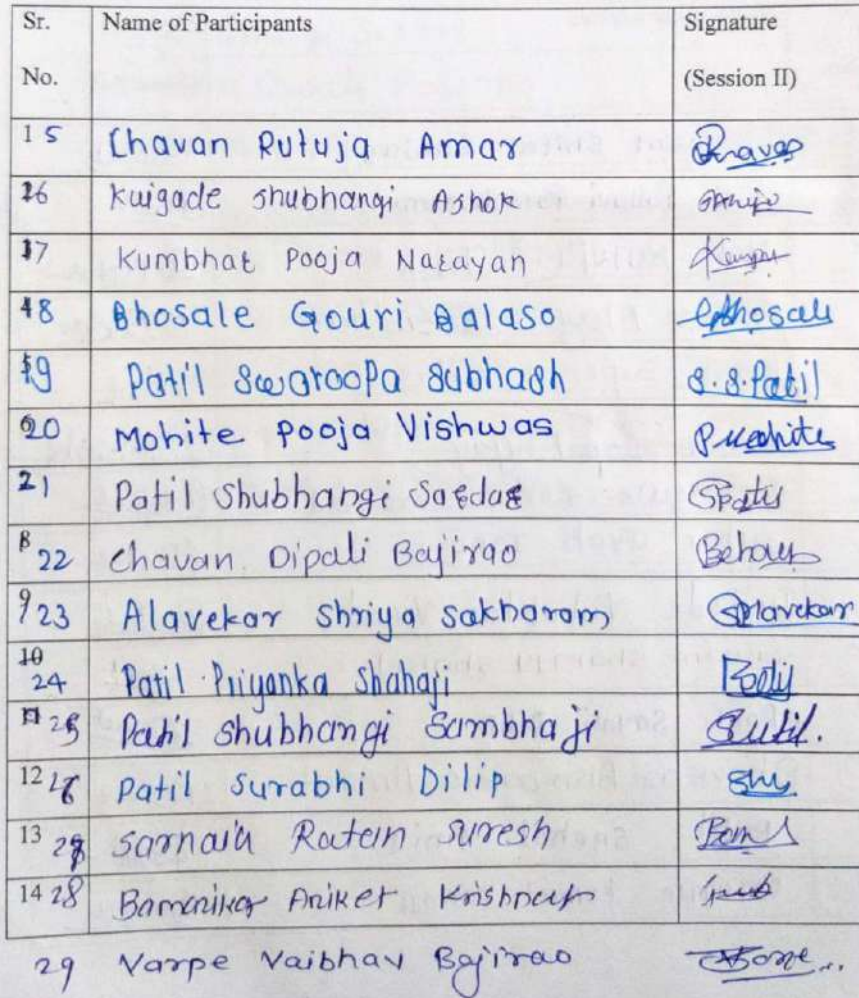 Sr. No. Name of Participants Signature (Session II)
15 Chavan Rutuja Amar Chavan
16 Kuigade Shubhangi Ashok
17 Kumbhar Pooja Narayan
18 Bhosale Gouri Balaso GBhosale
19 Patil Swaroopa Subhash S.S.Patil
20 Mohite Pooja Vishwas Pmohite
21 Patil Shubhangi Sardar
8 22 Chavan Dipali Bajirao
9 23 Alavekar Shriya Sakharam Salavekar
10 24 Patil Priyanka Shahaji
25 Patil Shubhangi Sambhaji
12 26 Patil Surabhi Dilip
13 27 Sarnaik Ratan Suresh
14 28 Aniket
29 Varpe Vaibhav Bajirao